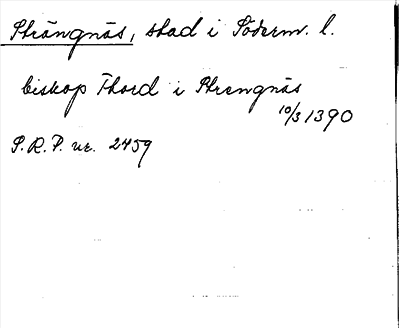 Strängnäs, stad i Söderm. l.
biskop Thord i Strengnäs
10/3 1390
S.R.P. nr. 2459